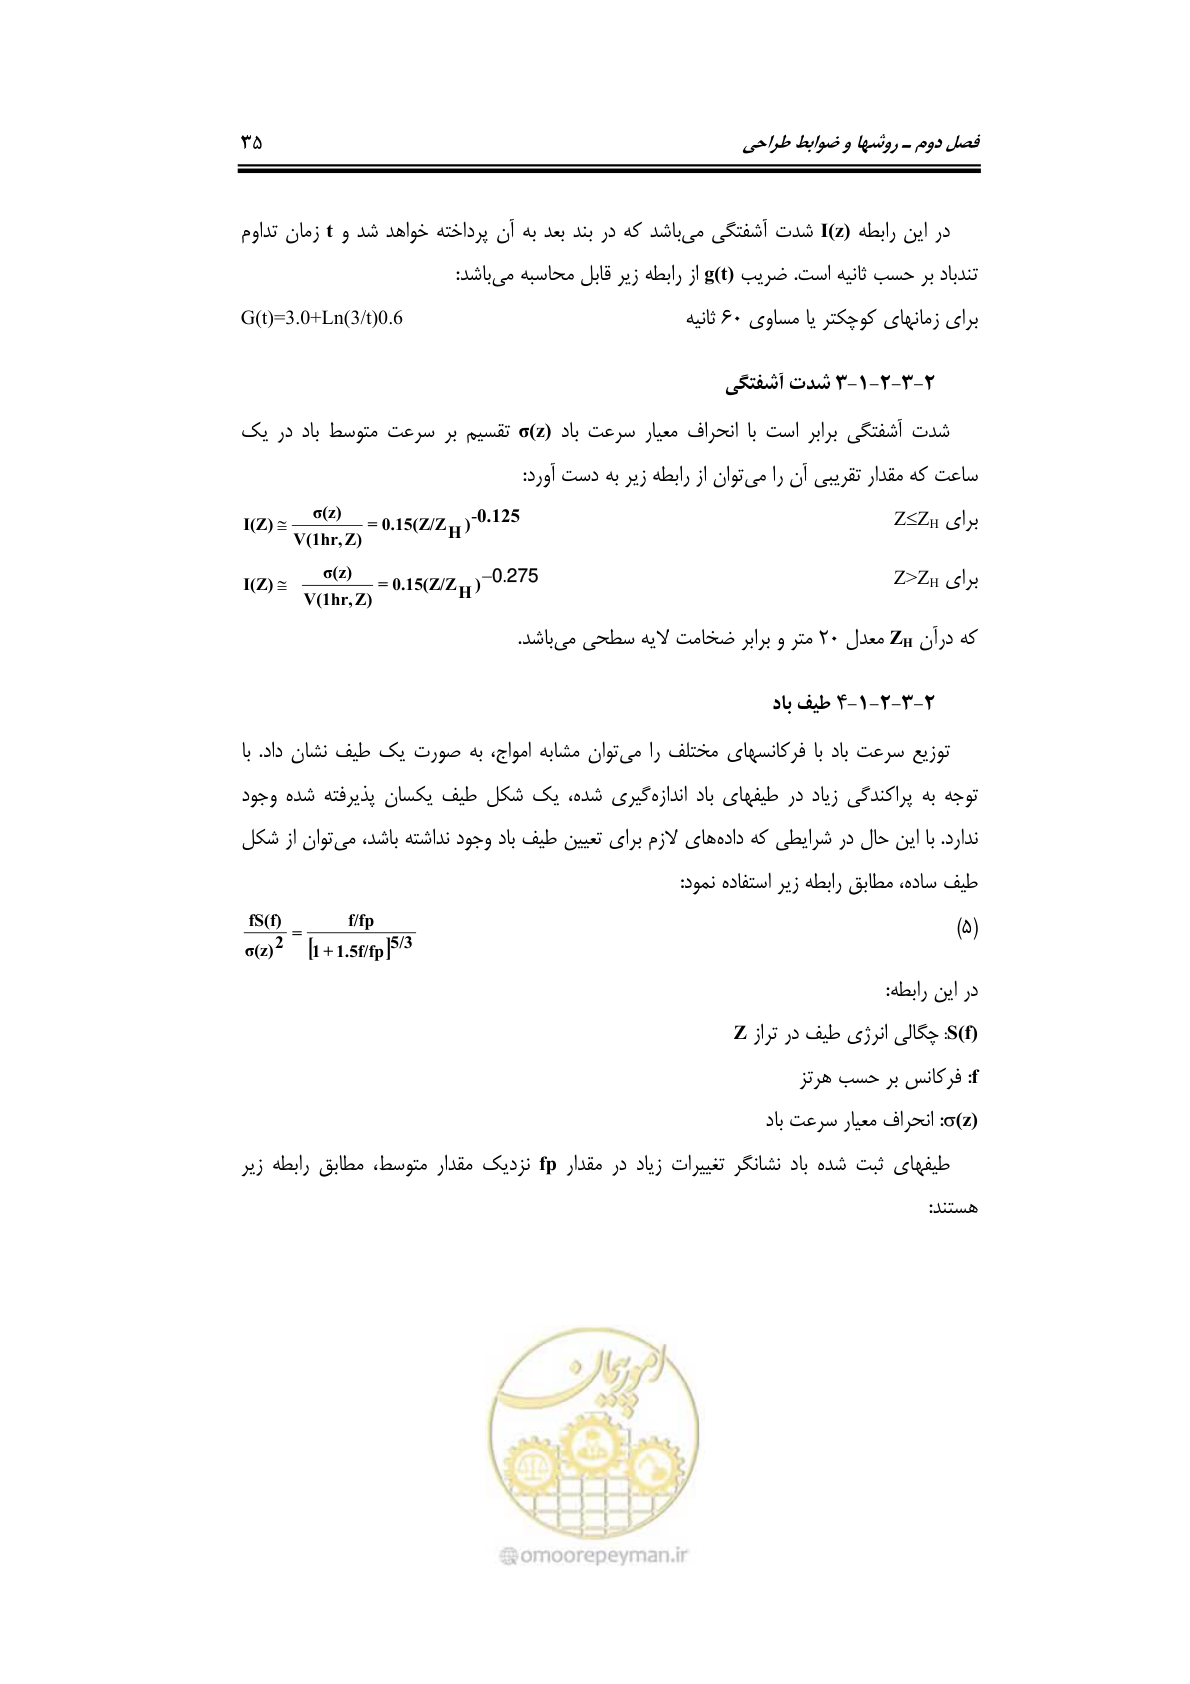 فصل دوم ـ روشها و ضوابط طراحی ۳۵
در این رابطه I(z) شدت آشفتگی می‌باشد که در بند بعد به آن پرداخته خواهد شد و t زمان تداوم
تندباد بر حسب ثانیه است. ضریب g(t) از رابطه زیر قابل محاسبه می‌باشد:
برای زمانهای کوچکتر یا مساوی ۶۰ ثانیه G(t)=3.0+Ln(3/t)0.6
۲-۳-۲-۱-۳ شدت آشفتگی
شدت آشفتگی برابر است با انحراف معیار سرعت باد σ(z) تقسیم بر سرعت متوسط باد در یک
ساعت که مقدار تقریبی آن را می‌توان از رابطه زیر به دست آورد:
برای Z≤Z_H I(Z) ≅ σ(z)/V(1hr, Z) = 0.15(Z/Z_H)^-0.125
برای Z>Z_H I(Z) ≅ σ(z)/V(1hr, Z) = 0.15(Z/Z_H)^−0.275
که درآن Z_H معدل ۲۰ متر و برابر ضخامت لایه سطحی می‌باشد.
۲-۳-۲-۱-۴ طیف باد
توزیع سرعت باد با فرکانسهای مختلف را می‌توان مشابه امواج، به صورت یک طیف نشان داد. با
توجه به پراکندگی زیاد در طیفهای باد اندازه‌گیری شده، یک شکل طیف یکسان پذیرفته شده وجود
ندارد. با این حال در شرایطی که داده‌های لازم برای تعیین طیف باد وجود نداشته باشد، می‌توان از شکل
طیف ساده، مطابق رابطه زیر استفاده نمود:
(۵) fS(f)/σ(z)^2 = f/fp / [1 + 1.5f/fp]^5/3
در این رابطه:
S(f): چگالی انرژی طیف در تراز Z
f: فرکانس بر حسب هرتز
σ(z): انحراف معیار سرعت باد
طیفهای ثبت شده باد نشانگر تغییرات زیاد در مقدار fp نزدیک مقدار متوسط، مطابق رابطه زیر
هستند:
امور پیمان
@omoorepeyman.ir